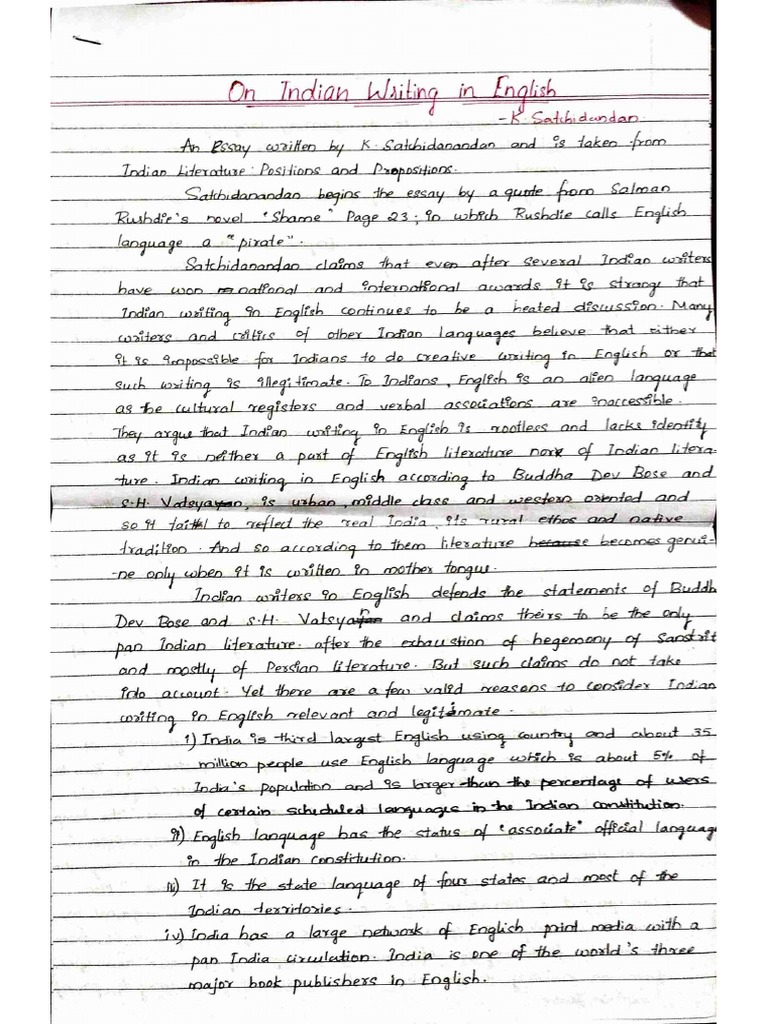 On Indian Writing in English
-K. Satchidandan.
An Essay written by K. Satchidanandan and is taken from
Indian Literature: Positions and Propositions.
Satchidanandan begins the essay by a quote from Salman
Rushdie's novel "Shame" Page 23; in which Rushdie calls English
language a "pirate".
Satchidanandan claims that even after several Indian writers
have won national and international awards it is strange that
Indian writing in English continues to be a heated discussion. Many
writers and critics of other Indian languages believe that either
it is impossible for Indians to do creative writing in English or that
such writing is illegitimate. To Indians, English is an alien language
as the cultural registers and verbal associations are inaccessible.
They argue that Indian writing in English is rootless and lacks identity
as it is neither a part of English literature nor of Indian litera-
ture. Indian writing in English according to Buddha Dev Bose and
S.H. Vatsyayan, is urban, middle class and western oriented and
so it fails to reflect the real India, its rural ethos and native
tradition. And so according to them literature becomes genui-
-ne only when it is written in mother tongue.
Indian writers in English defends the statements of Buddh
Dev Bose and S.H. Vatsyayan and claims theirs to be the only
pan Indian literature. after the exhaustion of hegemony of Sanskrit
and mostly of Persian literature. But such claims do not take
into account. Yet there are a few valid reasons to consider Indian
writing in English relevant and legitimate.
i) India is third largest English using country and about 35
million people use English language which is about 5% of
India's population and is larger than the percentage of users
of certain scheduled languages in the Indian constitution.
ii) English language has the status of "associate" official language
in the Indian constitution.
iii) It is the state language of four states and most of the
Indian territories.
iv) India has a large network of English print media with a
pan India circulation. India is one of the world's three
major book publishers in English.